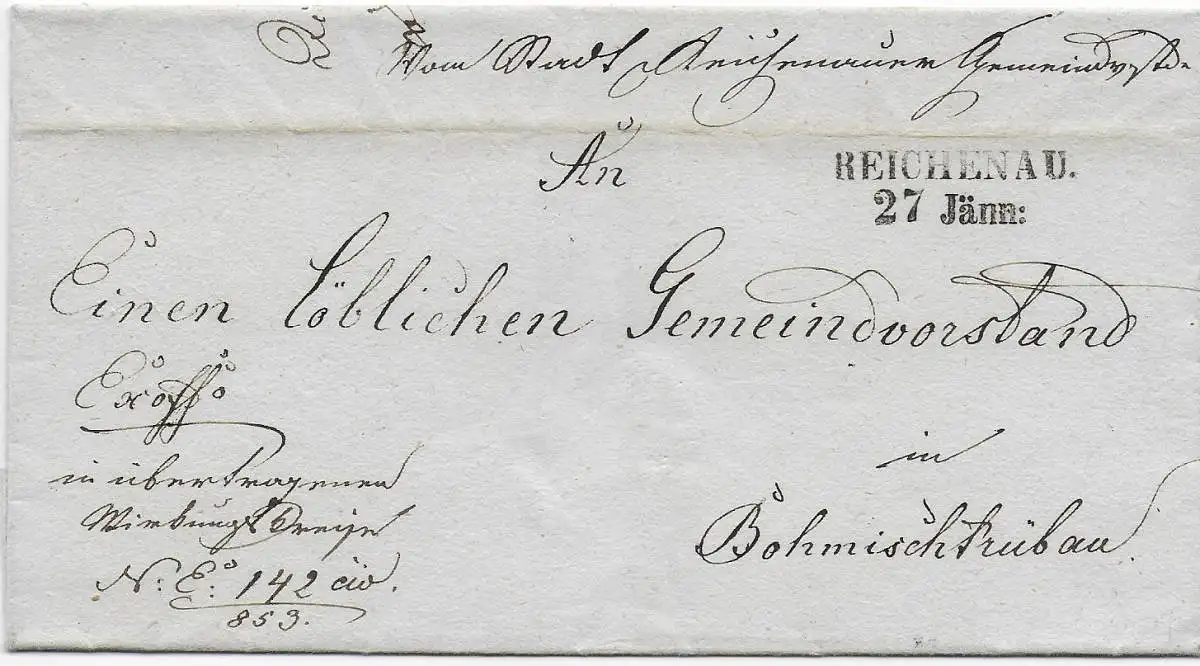 Vom Stadt Reichenauer Gemeindvstde
An
REICHENAU.
27 Jänn:
Einen löblichen Gemeindvorstand
Exoffo
in übertragenen
Wirkungskreise
N: E: 142 civ.
853.
in
Böhmischtrübau